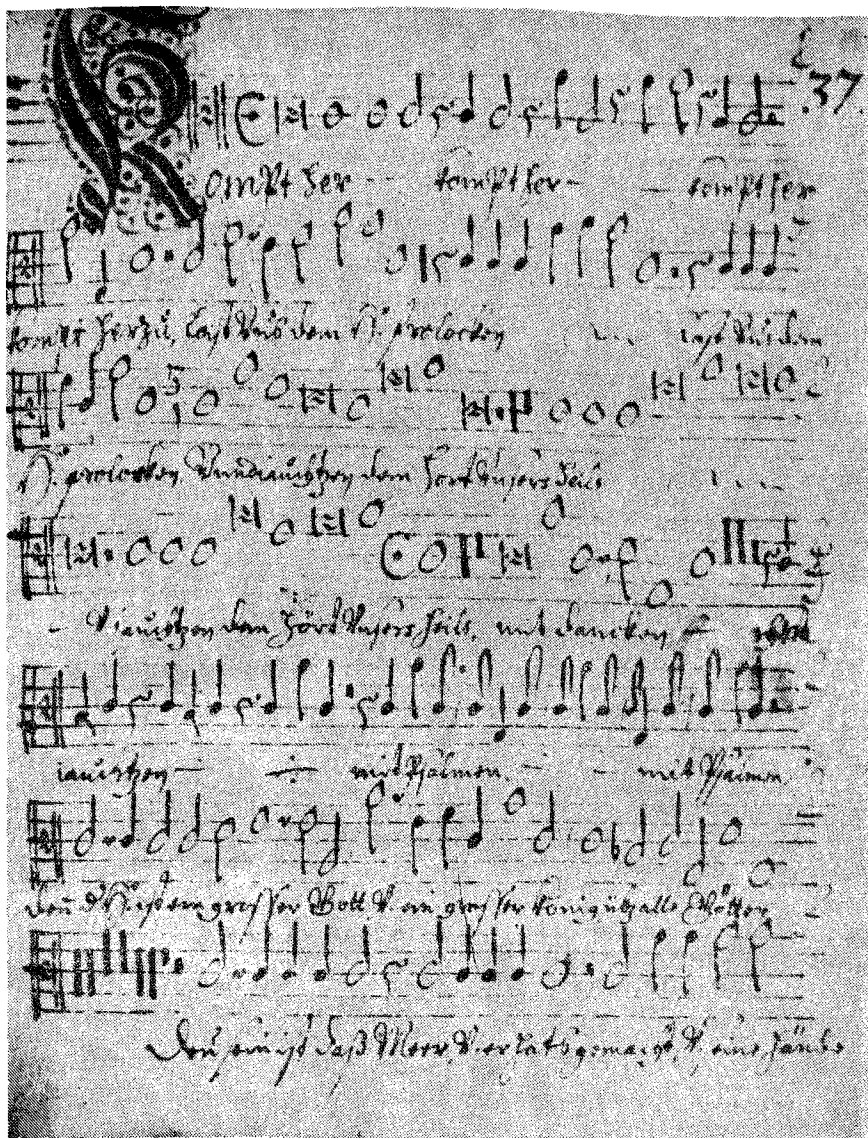 37.
Kompt her kompt her kompt her
kompt herzu, last uns dem H. frolocken last uns dem
H. frolocken, Und iauchtzen dem Hort unsers Heils
V iauchtzen dem Hort unsers Heils, mit dancken
iauchtzen mit Psalmen. mit Psalmen.
Den d' H. ist ein grosser Gott V. ein grosser König alle Götter
Den sein ist daß Meer, V. er hats gemacht, V. seine Hände